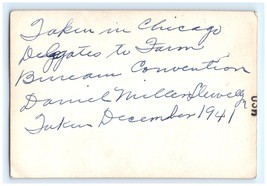 Taken in Chicago
Delegates to Farm
Bureau Convention
Daniel Miller
Taken December 1941
USA